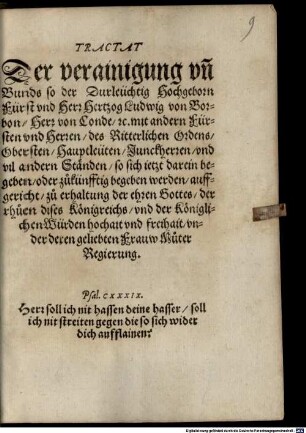 9
TRACTAT
Der verainigung vñ
Bunds so der Durleüchtig Hochgeborn
Fürst vnd Herr Hertzog Ludwig von Bor-
bon/ Herr von Conde/ ꝛc. mit andern Für-
sten vnd Herren/ des Ritterlichen Ordens/
Obersten/ Hauptleüten/ Junckherren/ vnd
vil andern Ständen/ so sich ietzt darein be-
geben/ oder zůkünfftig begeben werden/ auff-
gericht/ zů erhaltung der ehren Gottes/ der
rhůen dises Königreichs/ vnd der Königli-
chen Würden hochait vnd freihait/ vn-
der deren geliebten Frauw Můter
Regierung.
Psal. CXXXIX.
Herr soll ich nit hassen deine hasser/ soll
ich nit streiten gegen die so sich wider
dich aufflainen?